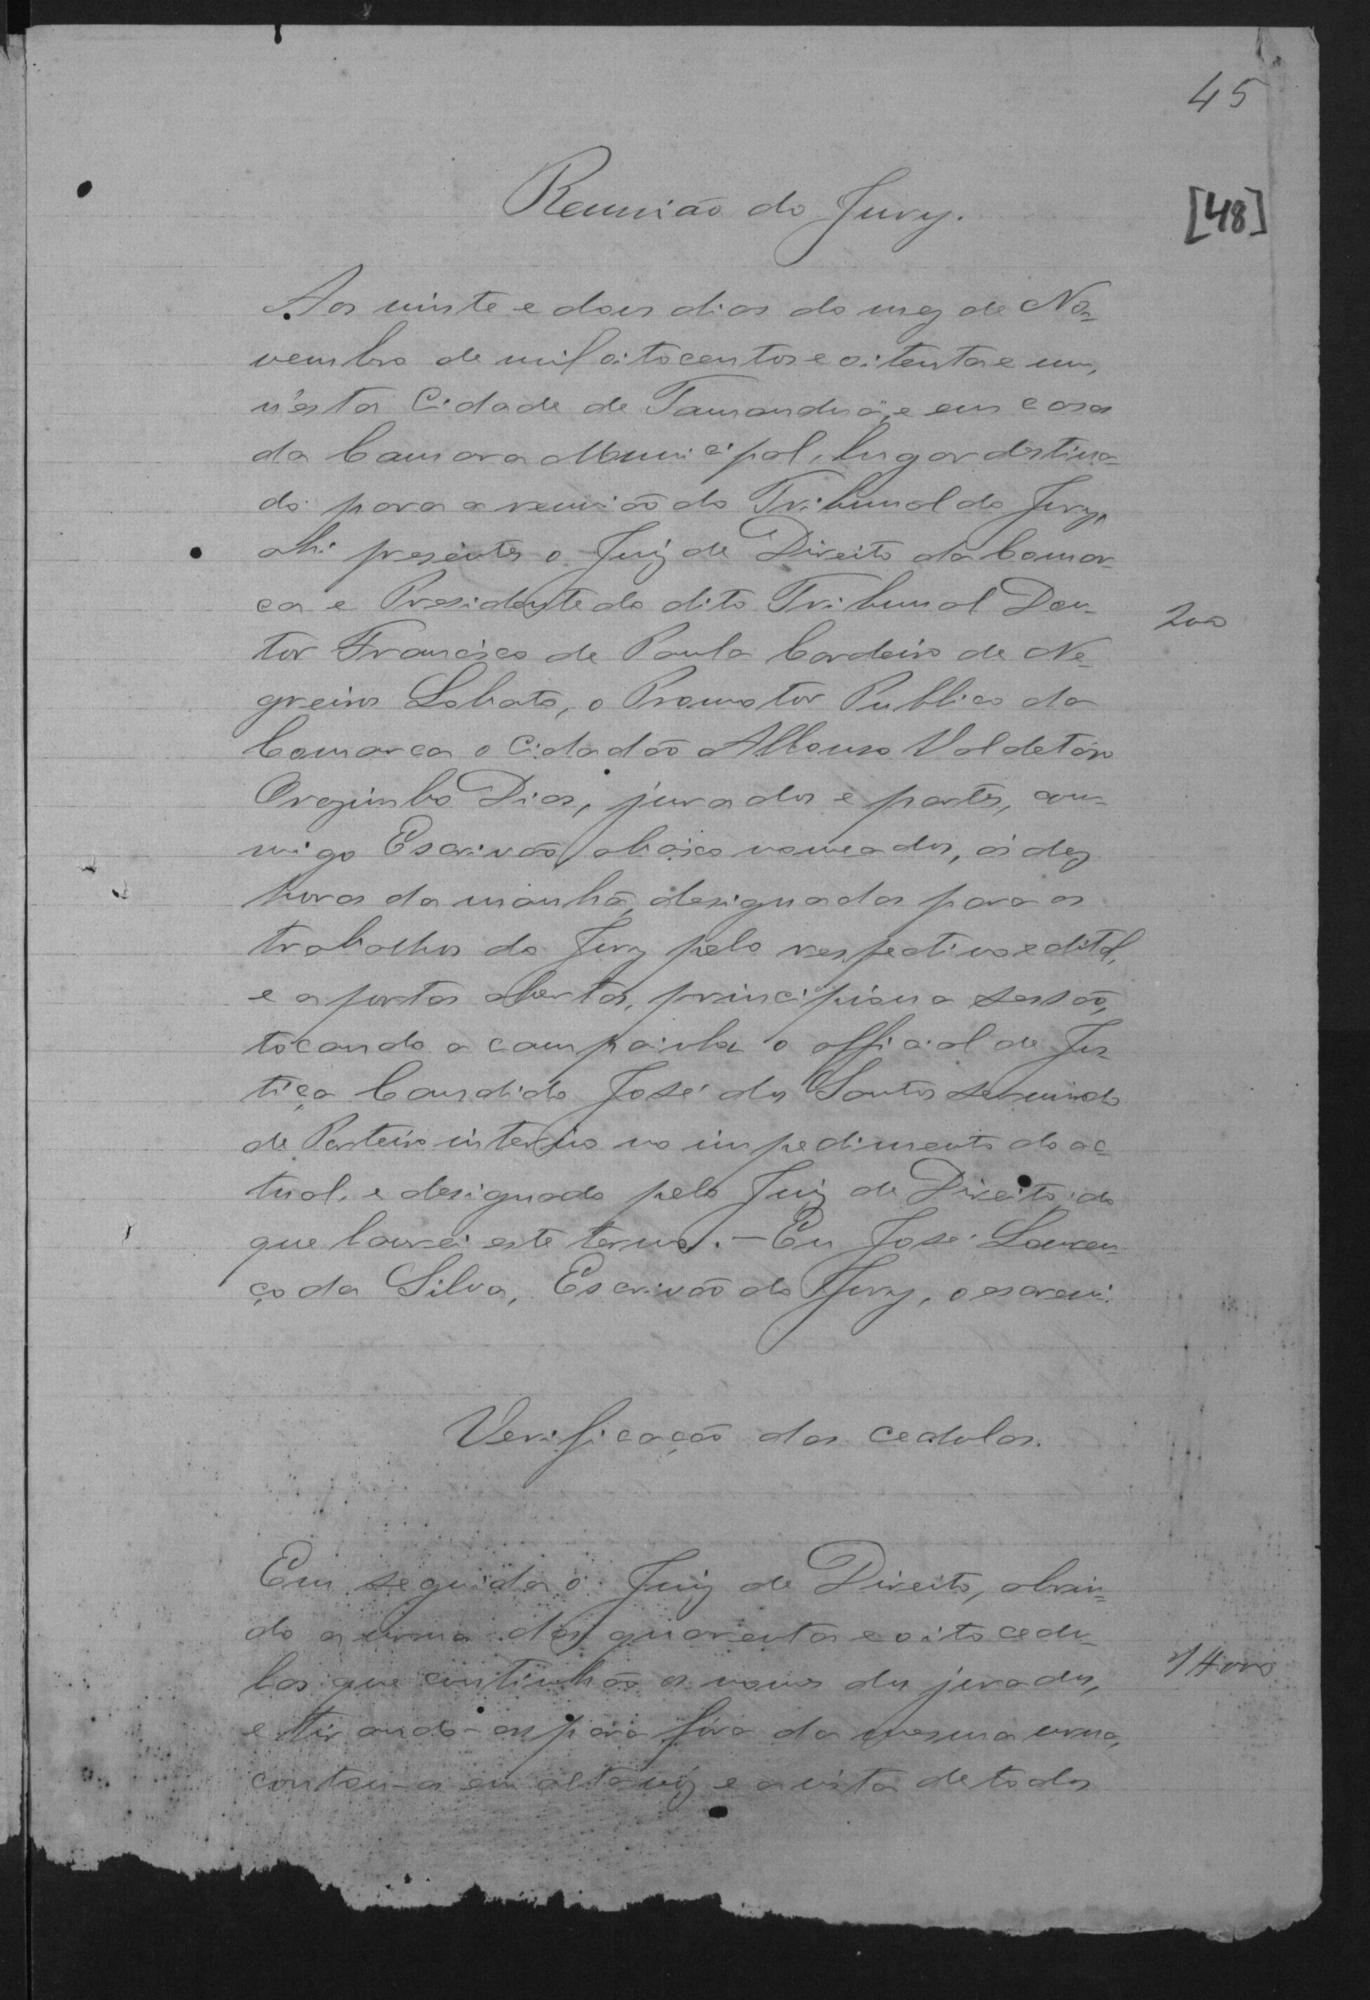 45
[48]
Reunião do Jury.
Aos vinte e dous dias do mez de No-
vembro de mil oitocentos e oitenta e um,
n'esta Cidade de Tamanduá, e em casa
da Camara Municipal, lugar destina-
do para a reunião do Tribunal do Jury,
ahi presentes o Juiz de Direito da Comar-
ca e Presidente do dito Tribunal Dou-
200
tor Francisco de Paula Cordeiro de Ne-
greiros Lobato, o Promotor Publico da
Comarca o Cidadão Affonso
Dias, jurados e partes, com-
migo Escrivão abaixo nomeado, ás dez
horas da manhã, designadas para os
trabalhos do Jury pelo respectivo edital,
e a portas abertas, principiou a sessão,
tocando a campainha o official de Jus
tiça Candido José dos Santos servindo
de Porteiro interino no impedimento do ac-
tual, e designado pelo Juiz de Direito; do
que lavrei este termo. - Eu José Louren-
ço da Silva, Escrivão do Jury, o escrevi.
Verificação das cedulas.
Em seguida o Juiz de Direito, abrin-
do a urna das quarenta e oito cedu-
las que continhão os nomes dos jurados,
1#000
e tirando-as para fóra da mesma urna,
contou-as em alta voz e a vista de todos